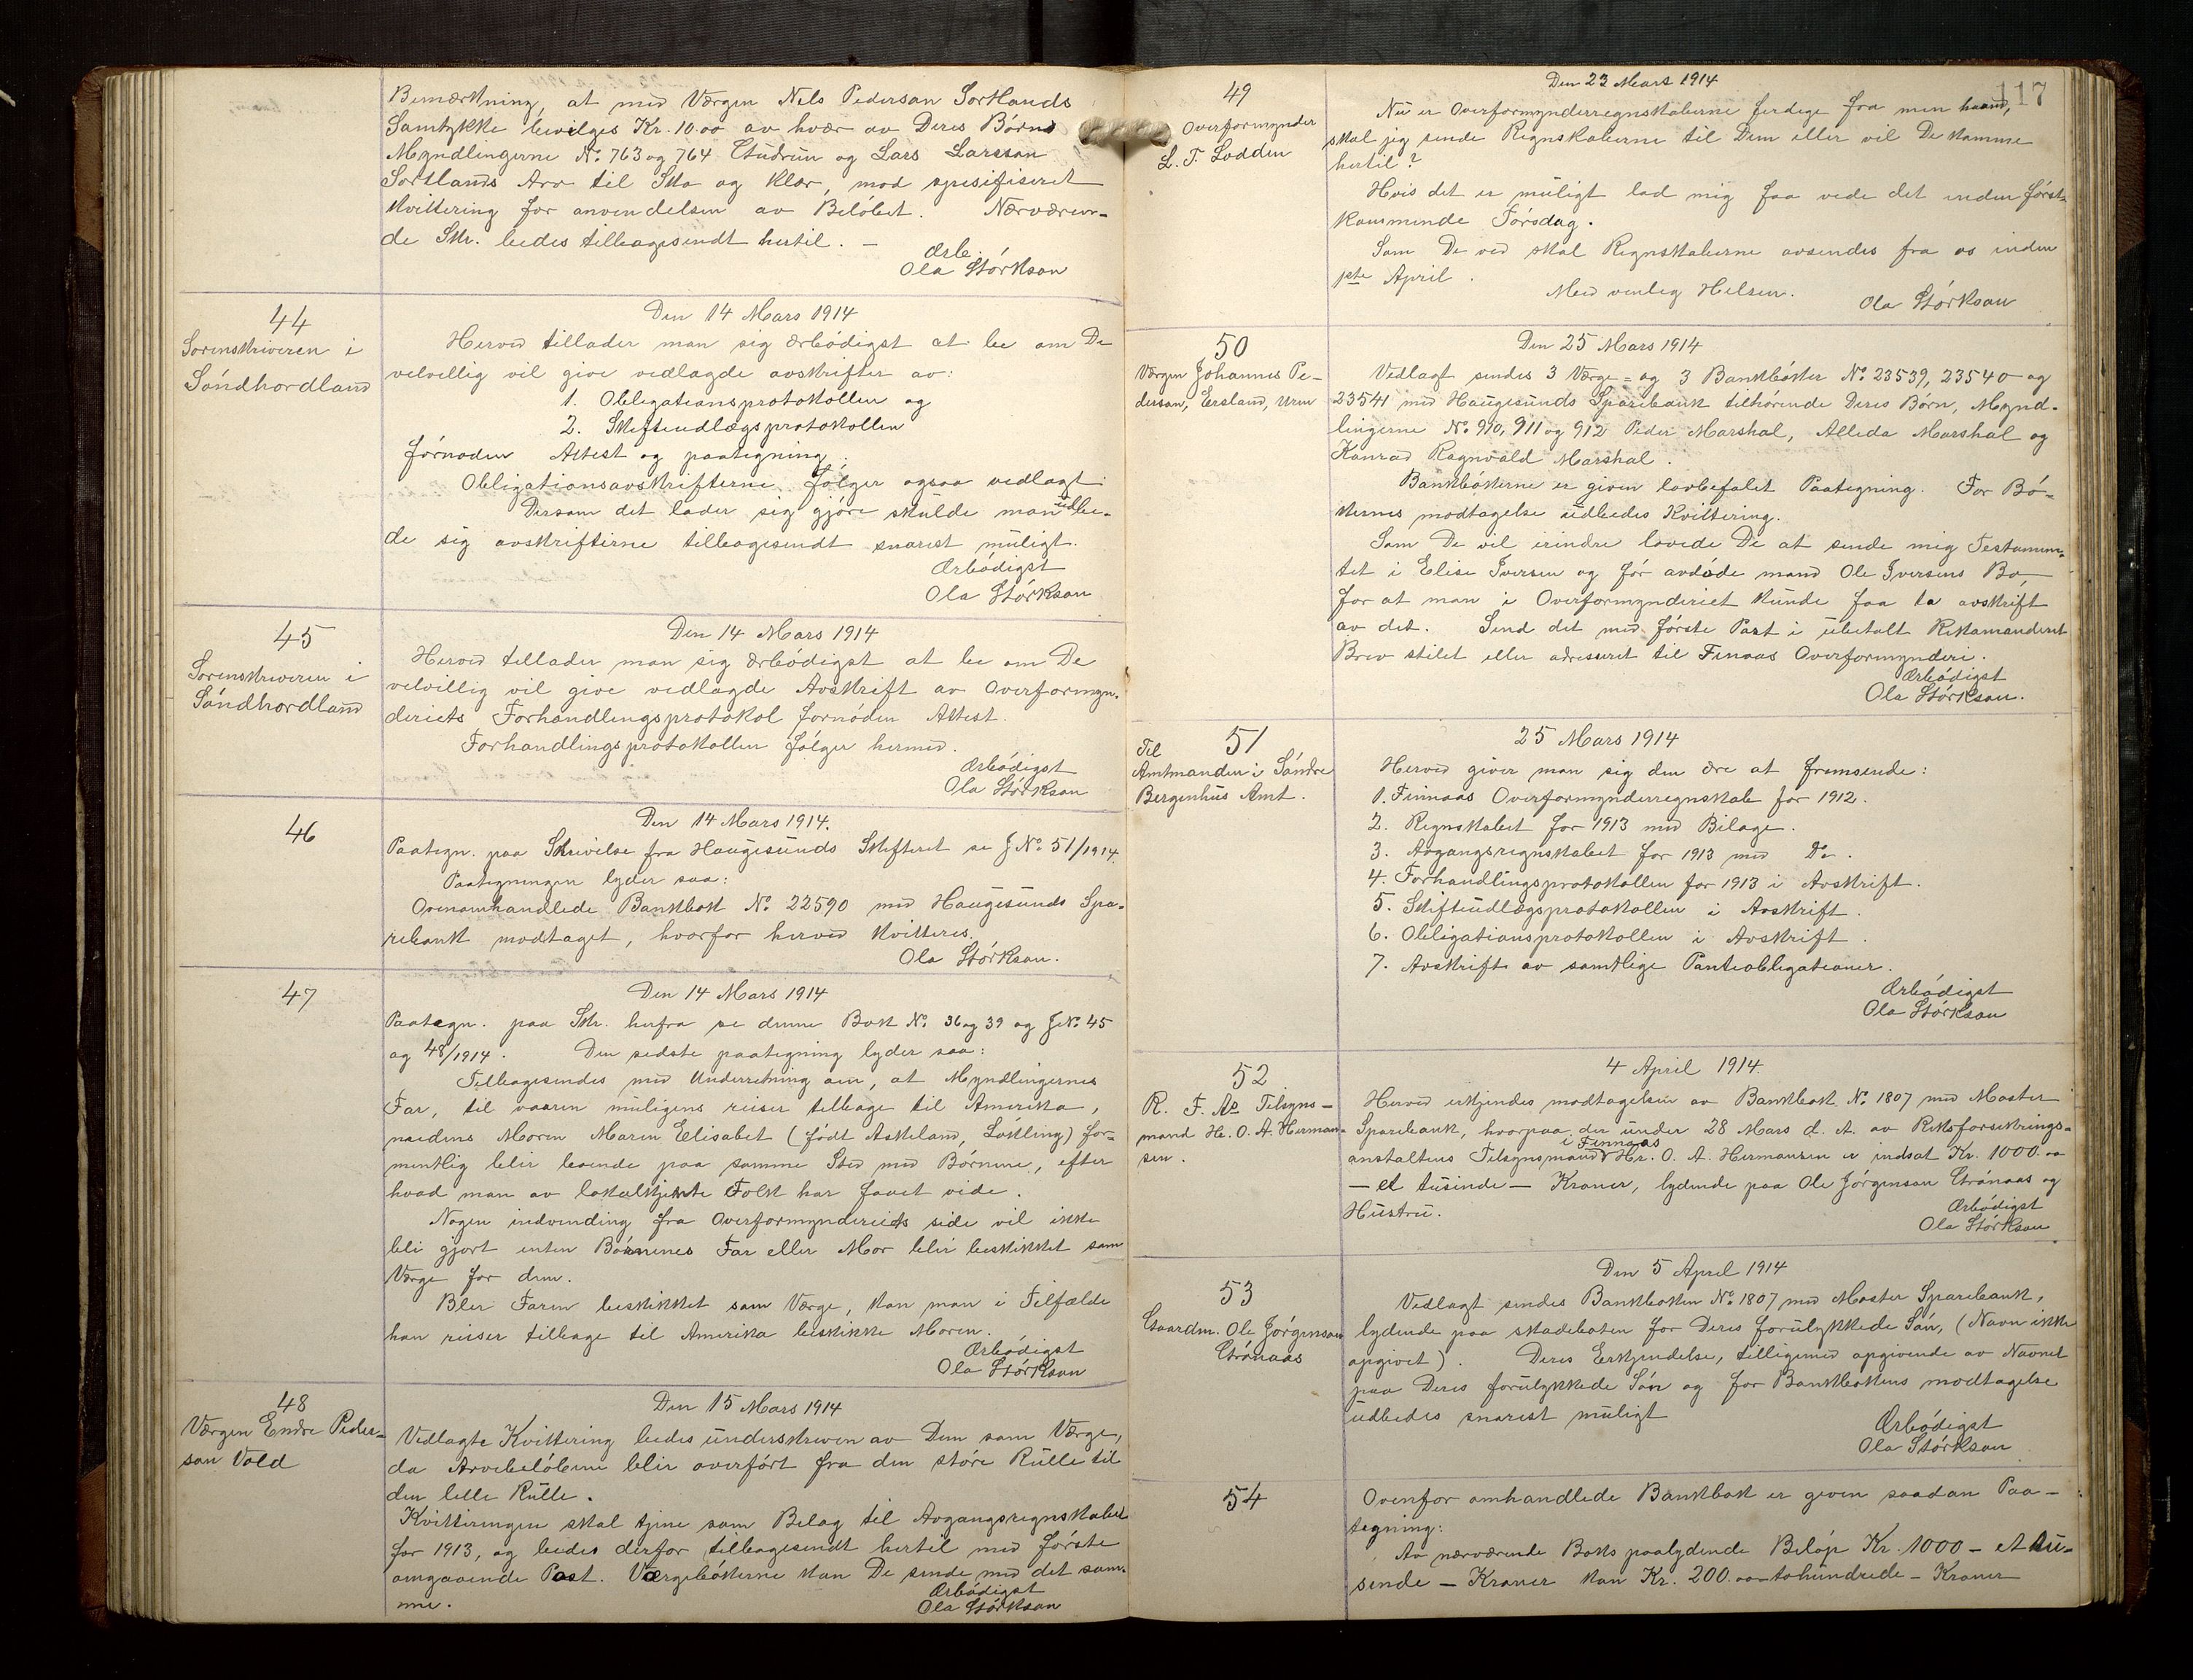 Bemærkning, at med Værgen Nels Pederson Sortlands
Samtykke bevilges Kr. 10.00 av hvær av Deres Børns
Myndlingerne No. 763 og 764 Gudrun og Lars Larsson
Sortlands Arv til Sko og Klær, mod spesifiseret
Kvittering for anvendelsen av Beløbet. Nærværen-
de Skr. bedes tilbagesendt hertil. —
Ærb.
Ola Størkson
44
Sorenskriveren i
Søndhordland
Den 14 Mars 1914
Herved tillader man sig ærbødigst at be om De
velvillig vil give vedlagde avskrifter av:
1. Obligationsprotokollen og
2. Skifteudlægsprotokollen
førnøden Attest og paategning.
Obligationsavskrifterne følger ogsaa vedlagt.
Dersom det lader sig gjøre skulde man udbe-
de sig avskrifterne tilbagesendt snarest muligt.
Ærbødigst
Ola Størkson
45
Sorenskriveren i
Søndhordland
Den 14 Mars 1914
Herved tillader man sig ærbødigst at be om De
velvillig vil give vedlagde Avskrift av Overformyn-
deriets Forhandlingsprotokol fornøden Attest.
Forhandlingsprotokollen følger hermed.
Ærbødigst
Ola Størkson
46
Den 14 Mars 1914.
Paategn. paa Skrivelse fra Haugesunds Skifteret se J No. 51/1914.
Paategningen lyder saa:
Ovenomhandlede Bankbok No. 22590 med Haugesunds Spa-
rebank modtaget, hvorfor herved kvitteres.
Ola Størkson.
47
Den 14 Mars 1914
Paategn. paa Skr. herfra se denne Bok No. 36 og 39 og J No. 45
og 48/1914. Den sidste paategning lyder saa:
Tilbagesendes med Underretning om, at Myndlingernes
Far, til vaaren muligens reiser tilbage til Amerika,
medens Moren Maren Elisabet (født Askeland, Løkling) for-
mentlig blir boende paa samme Sted med Børnene, efter
hvad man av lokalkjente Folk har faaet vide.
Nogen indvending fra Overformynderiets side vil ikke
bli gjort enten Børnenes Far eller Mor blir beskikket som
Værge for dem.
Blir Faren beskikket som Værge, kan man i Tilfælde
han reiser tilbage til Amerika beskikke Moren.
Ærbødigst
Ola Størkson
48
Værgen Endre Peder-
son Vold
Den 15 Mars 1914
Vedlagte Kvittering bedes underskreven av Dem som Værge,
da Arvebeløbene blir overført fra den store Rulle til
den lille Rulle.
Kvitteringen skal tjene som Belag til Avgangsregnskabet
for 1913, og bedes derfor tilbagesendt hertil med første
omgaaende Post. Værgebøkerne kan De sende med det sam-
me.
Ærbødigst
Ola Størkson
117
49
Overformynder
L. T. Lodden
Den 23 Mars 1914
Nu er Overformynderregnskaberne ferdige fra min haand,
skal jeg sende Regnskaberne til Dem eller vil De komme
hertil?
Hvis det er muligt lad mig faa vede det inden først-
kommende Torsdag.
Som De ved skal Regnskaberne avsendes fra os inden
1ste April.
Med venlig Helsen.
Ola Størkson
50
Værgen Johannes Pe-
derson, Ersland, Uren
Den 25 Mars 1914
Vedlagt sendes 3 Værge- og 3 Bankbøker No. 23539, 23540 og
23541 med Haugesunds Sparebank tilhørende Deres Børn, Mynd-
lingerne No. 910, 911 og 912 Peder Marshal, Alleda Marshal og
Konrad Ragnvald Marshal.
Bankbøkerne er given lovbefalet Paategning. For Bø-
kernes modtagelse udbedes Kvittering.
Som De vil erindre lovede De at sende mig Testamen-
tet i Elise Iversen og før avdøde mand Ole Iversens Bo,
for at man i Overformynderiet kunde faa ta avskrift
av det. Send det med første Post i ubetalt Rekomanderet
Brev stilet eller adresseret til Finnaas Overformynderi.
Ærbødigst
Ola Størkson.
51
Til
Amtmanden i Søndre
Bergenhus Amt.
25 Mars 1914
Herved giver man sig den ære at fremsende:
1. Finnaas Overformynderregnskab for 1912.
2. Regnskabet for 1913 med Bilage.
3. Avgangsregnskabet for 1913 med Do.
4. Forhandlingsprotokollen for 1913 i Avskrift.
5. Skifteudlægsprotokollen i Avskrift.
6. Obligationsprotokollen i Avskrift.
7. Avskrift av samtlige Panteobligationer.
Ærbødigst
Ola Størkson
52
R. F. As Tilsyns-
mand Hr. O. A. Herman-
sen.
4 April 1914
Herved erkjendes modtagelsen av Bankbok No. 1807 med Moster
Sparebank, hvorpaa der under 28 Mars d. A. av Riksforsikrings-
anstaltens Tilsynsmand i Finnaas Hr. O. A. Hermansen er indsat Kr. 1000.00
— et tusinde — Kroner, lydende paa Ole Jørgenson Grønaas og
Hustru.
Ærbødigst
Ola Størkson
53
Gaardm. Ole Jørgenson
Grønaas
Den 5 April 1914
Vedlagt sendes Bankboken No. 1807 med Moster Sparebank,
lydende paa skadeboten for Deres forulykkede Søn, (Navn ikke
opgivet). Deres Erkjendelse, tilligemed opgivende av Navnet
paa Deres forulykkede Søn og for Bankbokens modtagelse
udbedes snarest muligt
Ærbødigst
Ola Størkson
54
Ovenfor omhandlede Bankbok er given saadan Paa-
tegning:
Av nærværende Boks paalydende Beløp Kr. 1000 — et tu-
sinde — Kroner kan Kr. 200.00 — tohundrede — Kroner